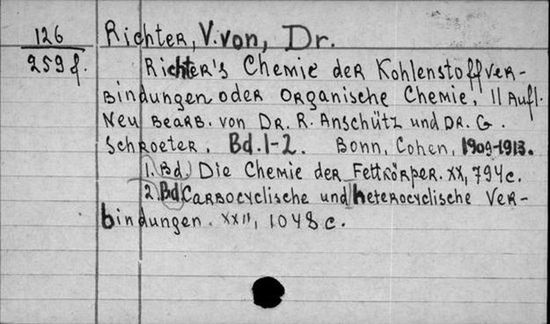 126
259f.
Richter, V. von, Dr.
Richter's Chemie der Kohlenstoffver-
bindungen oder organische Chemie. 11 Aufl.
Neu bearb. von Dr. R. Anschütz und Dr. G.
Schroeter. Bd. 1-2. Bonn, Cohen, 1909-1913.
1. Bd. Die Chemie der Fettkörper. XX, 794c.
2. Bd. Carbocyclische und heterocyclische Ver-
bindungen. XXII, 1048c.